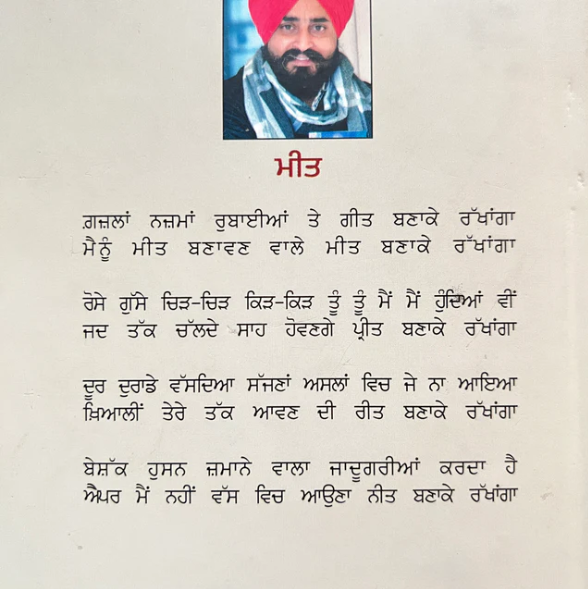 ਮੀਤ
ਗ਼ਜ਼ਲਾਂ ਨਜ਼ਮਾਂ ਰੁਬਾਈਆਂ ਤੇ ਗੀਤ ਬਣਾਕੇ ਰੱਖਾਂਗਾ
ਮੈਨੂੰ ਮੀਤ ਬਣਾਵਣ ਵਾਲੇ ਮੀਤ ਬਣਾਕੇ ਰੱਖਾਂਗਾ
ਰੋਸੇ ਗੁੱਸੇ ਚਿੜ-ਚਿੜ ਕਿੜ-ਕਿੜ ਤੂੰ ਤੂੰ ਮੈਂ ਮੈਂ ਹੁੰਦਿਆਂ ਵੀਂ
ਜਦ ਤੱਕ ਚੱਲਦੇ ਸਾਹ ਹੋਵਣਗੇ ਪ੍ਰੀਤ ਬਣਾਕੇ ਰੱਖਾਂਗਾ
ਦੂਰ ਦੁਰਾਡੇ ਵੱਸਦਿਆ ਸੱਜਣਾਂ ਅਸਲਾਂ ਵਿਚ ਜੇ ਨਾ ਆਇਆ
ਖ਼ਿਆਲੀਂ ਤੇਰੇ ਤੱਕ ਆਵਣ ਦੀ ਰੀਤ ਬਣਾਕੇ ਰੱਖਾਂਗਾ
ਬੇਸ਼ੱਕ ਹੁਸਨ ਜ਼ਮਾਨੇ ਵਾਲਾ ਜਾਦੂਗਰੀਆਂ ਕਰਦਾ ਹੈ
ਐਪਰ ਮੈਂ ਨਹੀਂ ਵੱਸ ਵਿਚ ਆਉਣਾ ਨੀਤ ਬਣਾਕੇ ਰੱਖਾਂਗਾ